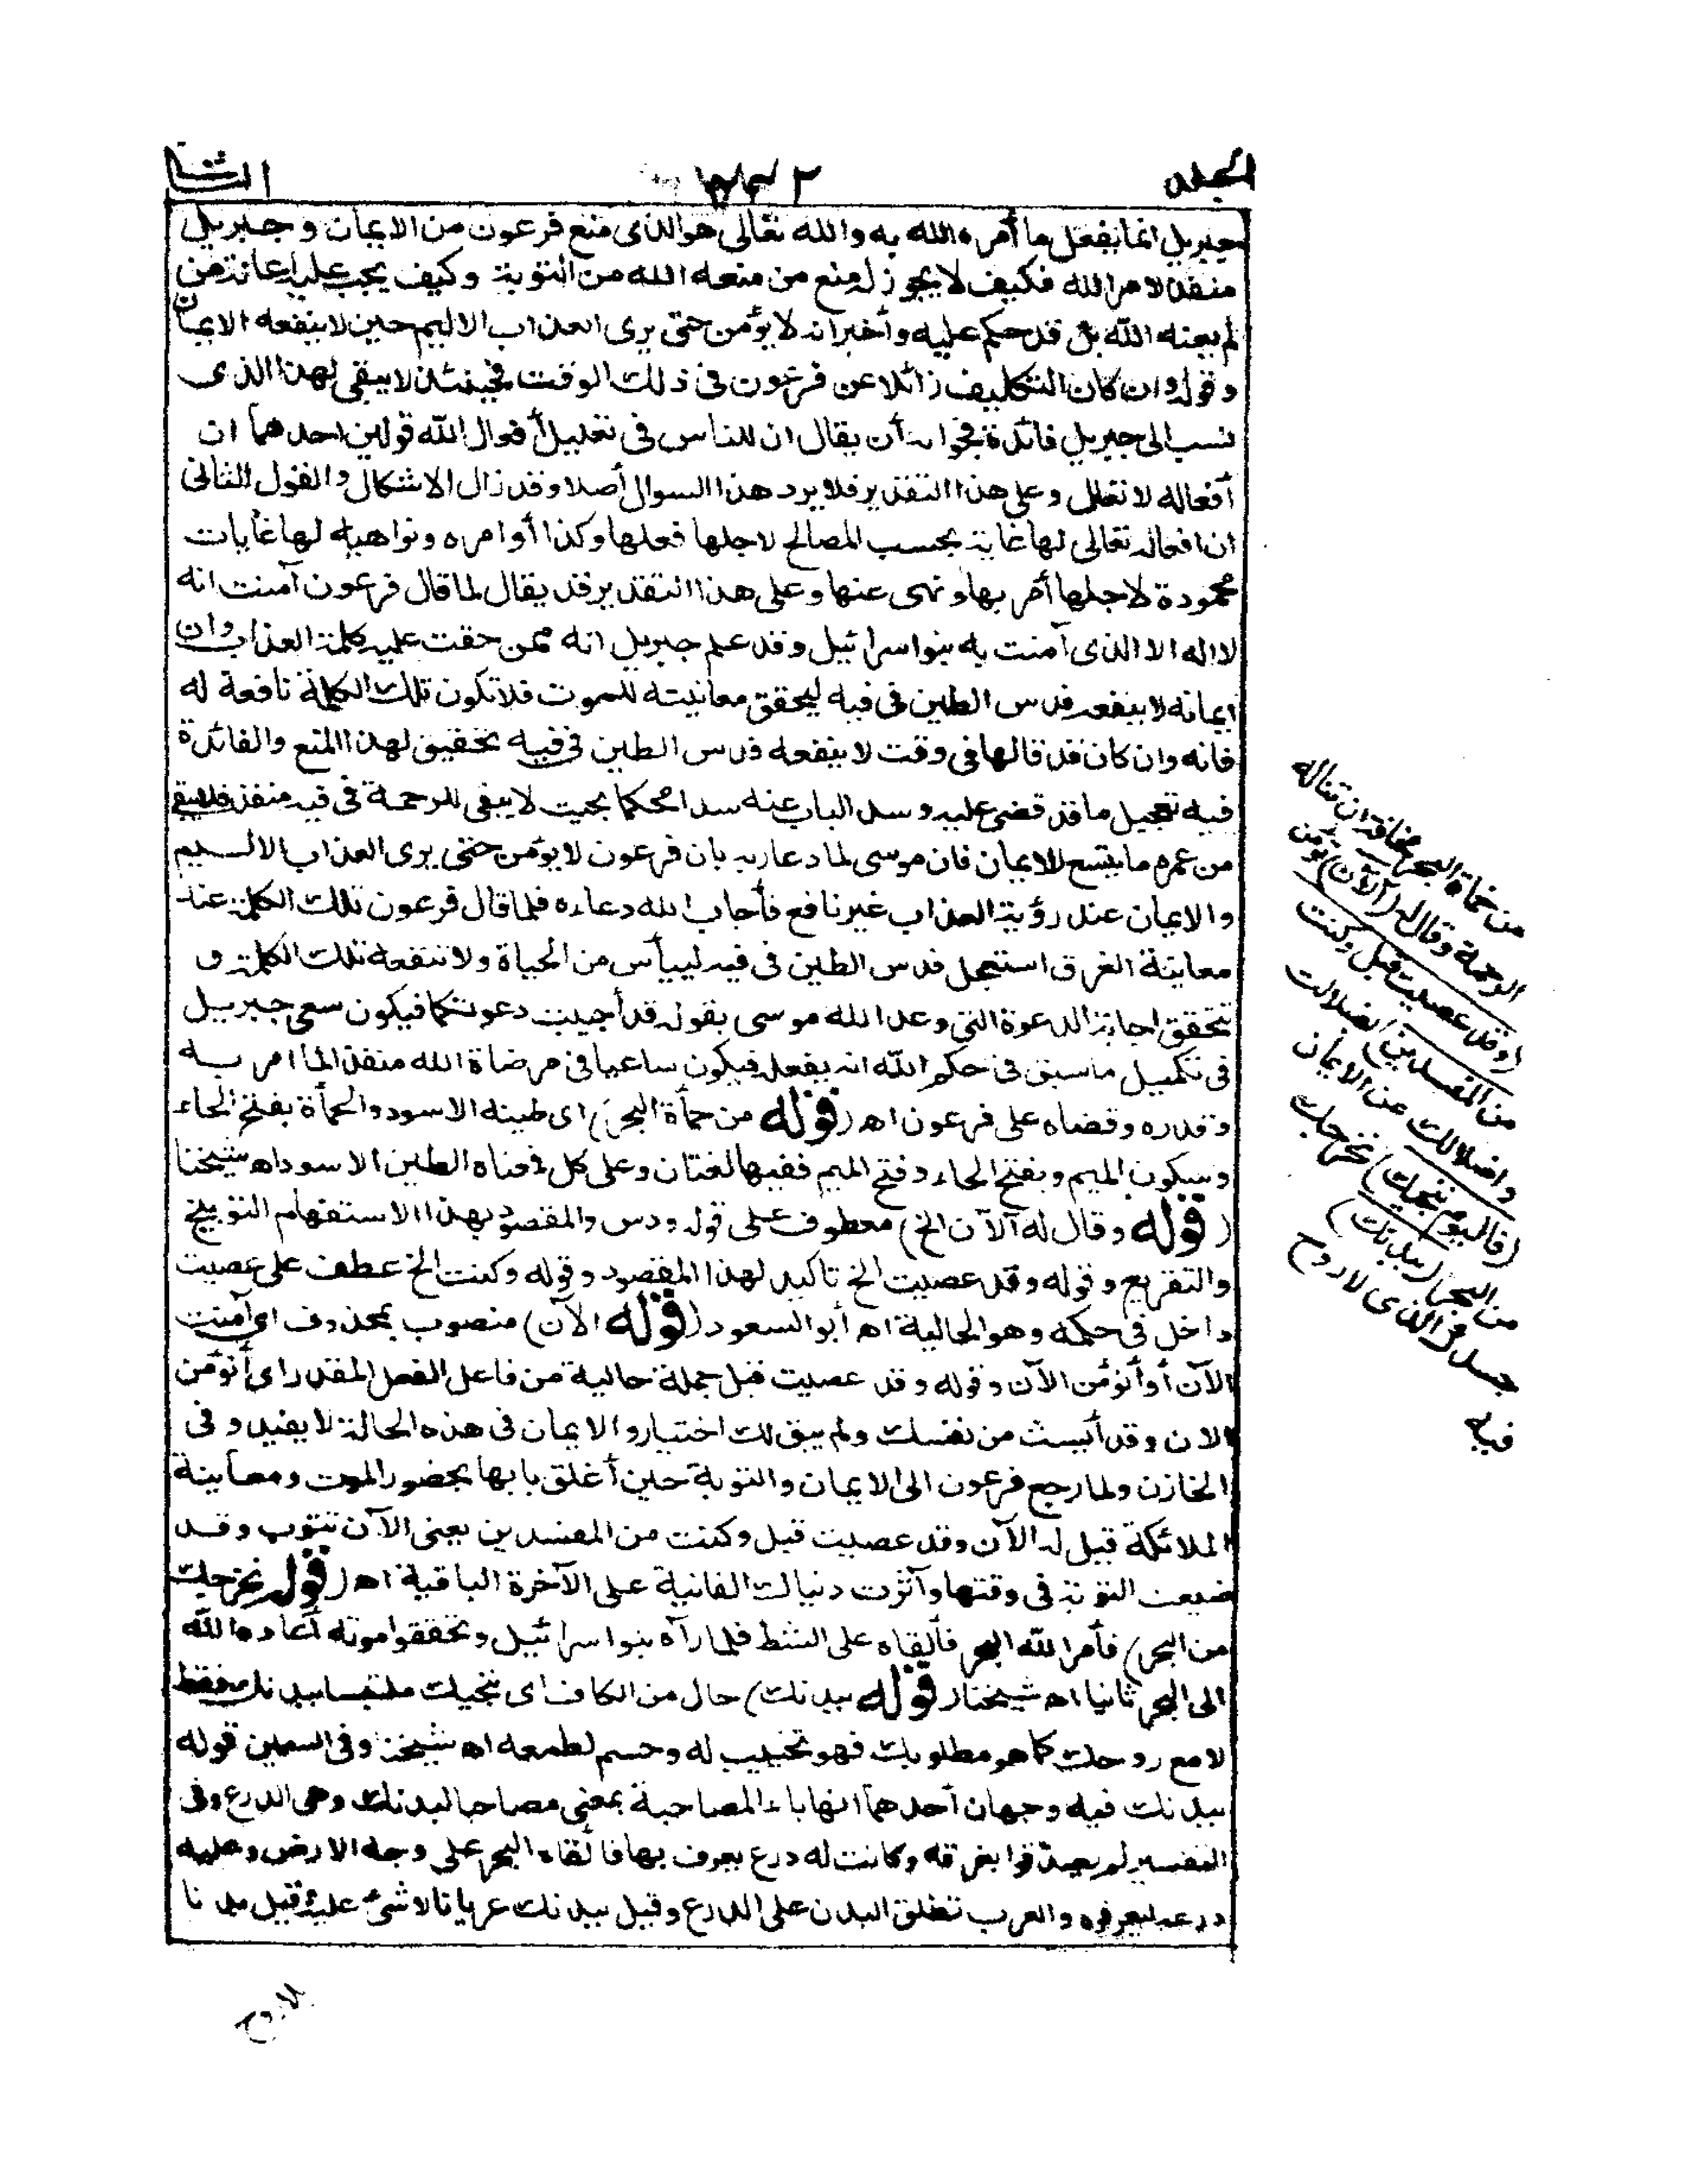 المجلد ٢ الثـا
جبريل انما يفعل ما أمره الله به والله تعالى هو الذى منع فرعون من الايمان و جبريل
منفذ لامر الله فكيف لا يجوز له منع من منعه الله من التوبة وكيف يجب عليه اعانة من
لم يعنه الله بل قد حكم عليه وأخبر انه لا يؤمن حتى يرى العذاب الاليم حين لا ينفعه الايمان
وقوله وان كان التكليف زائلا عن فرعون فى ذلك الوقت فحينئذ لا يبقى لهذا الذى
نسب الى جبريل فائدة فجوابه أن يقال ان للناس فى تعليل أفعال الله قولين احدهما ان
أفعاله لا تعلل وعلى هذا التقدير فلا يرد هذا السوال أصلا وقد زال الاشكال والقول الثانى
ان افعاله تعالى لها غاية بحسب المصالح لاجلها فعلها وكذا أوامره ونواهيه لها غايات
محمودة لاجلها أمر بها ونهى عنها وعلى هذا التقدير قد يقال لما قال فرعون آمنت انه
لا اله الا الذى آمنت به بنوا سرائيل وقد علم جبريل انه ممن حقت عليه كلمة العذاب وان
ايمانه لا ينفعه فدس الطين فى فيه ليحقق معانيته للموت فلا تكون تلك الكلمة نافعة له
فانه وان كان قد قالها فى وقت لا ينفعه فدس الطين فى فيه تحقيق لهذا المنع والفائدة
فيه تعجيل ما قد قضى عليه وسد الباب عنه سدا محكما بحيث لا يبقى للرحمة فى فيه منفذ فلا يبقى
من عمره ما يتسع للايمان فان موسى لما دعا ربه بان فرعون لا يؤمن حتى يرى العذاب الاليم
والايمان عند رؤية العذاب غير نافع فأجاب الله دعاءه فلما قال فرعون تلك الكلمة عند
معاينة الغرق استعجل فدس الطين فى فيه لييأس من الحياة ولا تنفعه تلك الكلمة و
تتحقق اجابة الدعوة التى وعد الله موسى بقوله قد أجيبت دعوتكما فيكون سعى جبريل
فى تكميل ما سبق فى حكم الله انه يفعله فيكون ساعيا فى مرضاة الله منفذا لما امر به
وقدره وقضاه على فرعون اه (قوله من حمأة البحر) اى طينه الاسود والحمأة بفتح الحاء
وسكون الميم وبفتح الحاء وفتح الميم ففيها لغتان وعلى كل فمعناه الطين الاسود اه شيخنا
(قوله وقال له آلآن الخ) معطوف على قوله ودس والمقصود بهذا الاستفهام التوبيخ
والتقريع وقوله وقد عصيت الخ تاكيد لهذا المقصود وقوله وكنت الخ عطف على عصيت
داخل فى حكمه وهو الحالية اه أبو السعود (قوله الآن) منصوب بمحذوف اى آمنت
الآن أو أتؤمن الآن وقوله وقد عصيت قبل جملة حالية من فاعل الفعل المقدر اى أتؤمن
الان وقد أيست من نفسك ولم يبق لك اختيار والايمان فى هذه الحالة لا يفيد وفى
الخازن ولما رجع فرعون الى الايمان والتوبة حين أغلق بابها بحضور الموت ومعاينة
الملائكة قيل له الآن وقد عصيت قبل وكنت من المفسدين يعنى الآن تتوب وقد
ضيعت التوبة فى وقتها وآثرت دنياك الفانية على الآخرة الباقية اه (قوله نخرجك
من البحر) فأمر الله البحر فألقاه على الشط فلما رآه بنوا سرائيل وتحققوا موته أعاده الله
الى البحر ثانيا اه شيخنا (قوله ببدنك) حال من الكاف اى ننجيك ملتبسا ببدنك فقط
لا مع روحك كما هو مطلوبك فهو تخييب له وحسم لطمعه اه شيخنا وفى السمين قوله
ببدنك فيه وجهان أحدهما انها باء المصاحبة بمعنى مصاحبا لبدنك وهى الدرع وفى
التفسير لم يصدقوا بغرقه وكانت له درع يعرف بها فألقاه البحر على وجه الارض وعليه
درعه ليعرفوه والعرب تطلق البدن على الدرع وقيل ببدنك عريانا لا شئ عليه وقيل بدنا
من حمأة البحر مخافة ان تناله
الرحمة وقال له (آلآن) تؤمن
(وقد عصيت قبل وكنت
من المفسدين) بضلالك
واضلالك عن الايمان
(فاليوم ننجيك) نخرجك
من البحر (ببدنك)
جسدك الذى لا روح
فيه